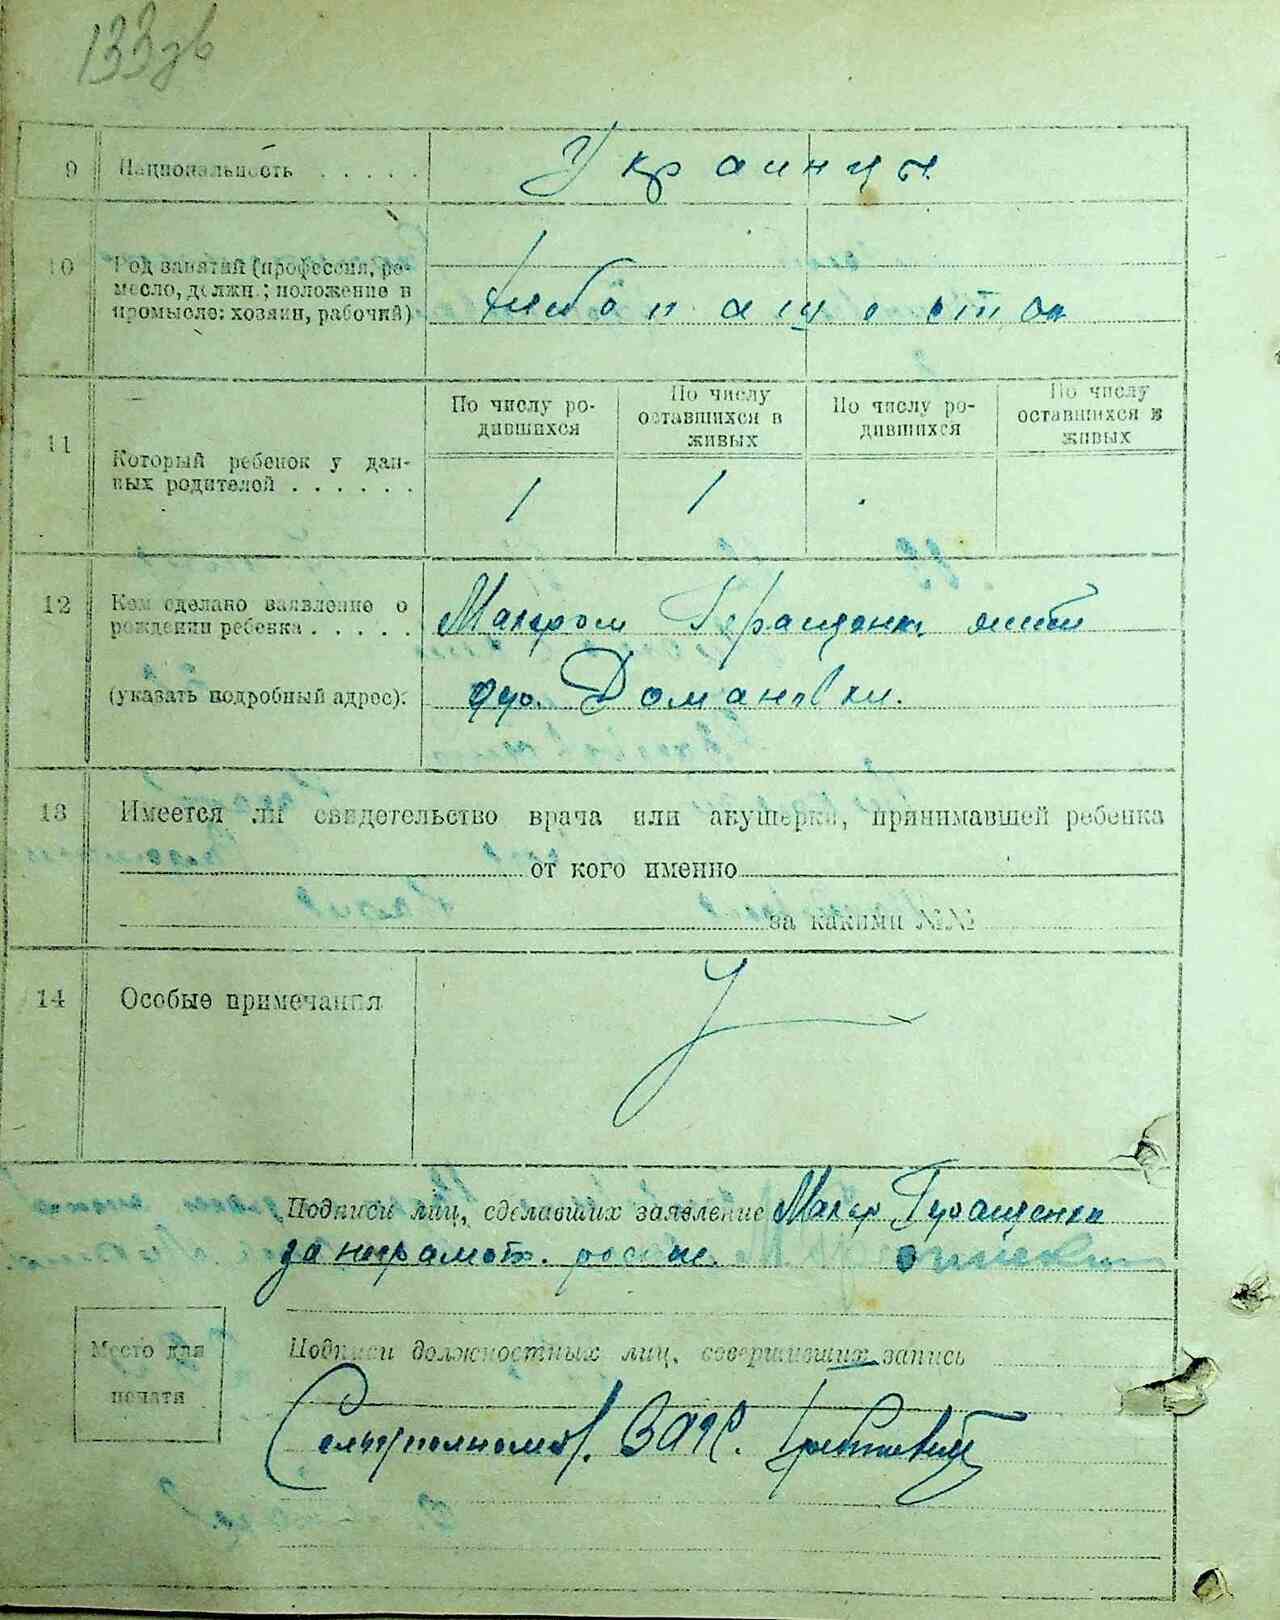 133
9 Национальность . . . . . Украинцы
10 Род занятий (профессия, ре-
месло, должн.; положение в
промысле: хозяин, рабочий) хлебопашество
11 Который ребенок у дан-
ных родителей . . . . . .
По числу ро-
дившихся
По числу
оставшихся в
живых
По числу ро-
дившихся
По числу
оставшихся в
живых
1 1
12 Кем сделано заявление о
рождении ребенка . . . . . Геращенко
(указать подробный адрес). Домановки.
13 Имеется ли свидетельство врача или акушерки, принимавшей ребенка
от кого именно
за какими №№
14 Особые примечания
Подписи лиц, сделавших заявление Геращенко
за неграмотн.
Место для
печати
Подписи должностных лиц, совершивших запись
ЗАГС.